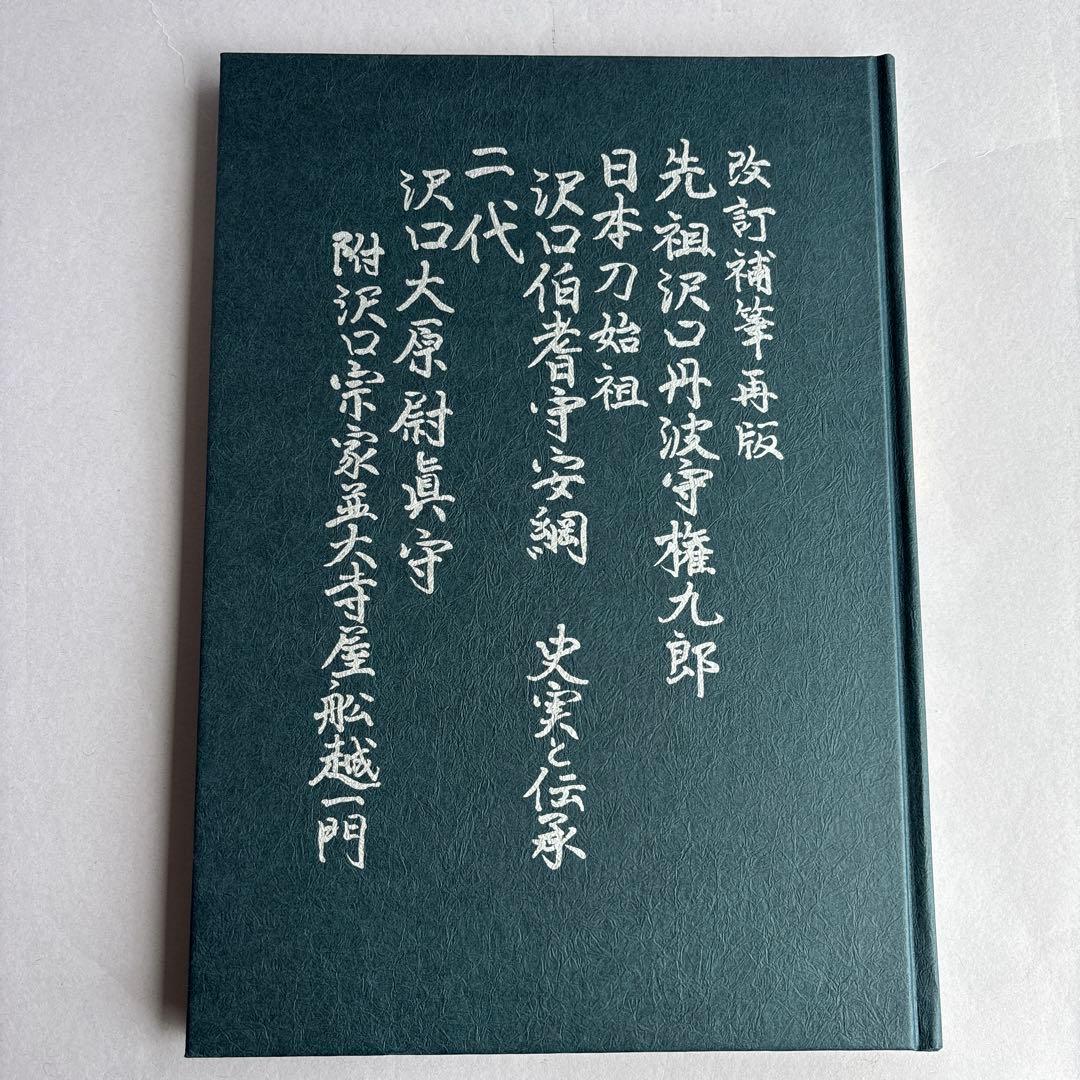 改訂補筆再版
先祖沢口丹波守権九郎
日本刀始祖
沢口伯耆守安綱 史実と伝承
二代
沢口大原尉眞守
附沢口宗家並大寺屋舩越一門